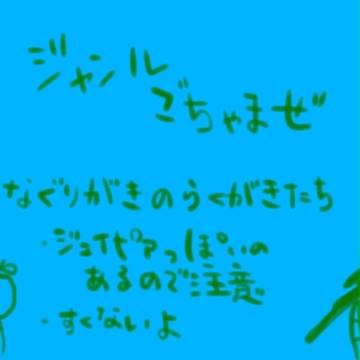 ジャンル
ごちゃまぜ
なぐりがきのらくがきたち
・ジュイピアっぽいの
あるので注意
・すくないよ